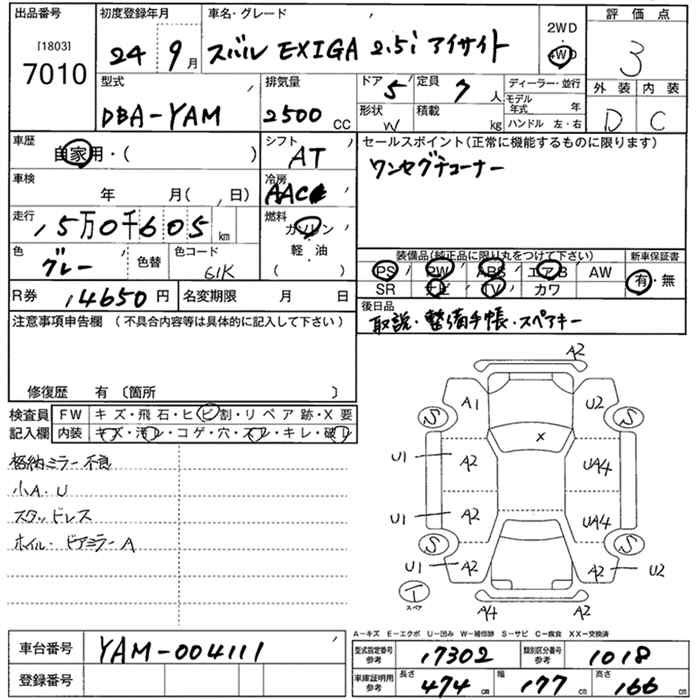 出品番号 初度登録年月 車名・グレード 2WD 評価点
[1803] 7010 24 9月 スバル EXIGA 2.5i アイサイト 4WD 3
型式 排気量 ドア 5 定員 7人 ディーラー・並行 外装 内装
DBA-YAM 2500 CC 形状 W 積載 kg モデル年式 年 D C
ハンドル 左・右
車歴 自家用・( ) シフト AT セールスポイント(正常に機能するものに限ります)
車検 年 月( 日) 冷房 AAC ワンセグチューナー
走行 5万0千605 km 燃料 ガソリン
色 グレー 色替 色コード 61K 軽・油 ( )
装備品(純正品に限り丸をつけて下さい) 新車保証書
PS PW ABS エアB AW 有・無
SR ナビ TV カワ
R券 14650円 名変期限 月 日 後日品
取説・整備手帳・スペアキー
注意事項申告欄 (不具合内容等は具体的に記入して下さい)
修復歴 有 〔箇所 〕
検査員 FW キズ・飛石・ヒビ割・リペア跡・X要
記入欄 内装 キズ・汚レ・コゲ・穴・スレ・キレ・破レ
格納ミラー不良
小A・U
スタッドレス
ホイル・ドアミラーA
A2
A1 U2
S S
X
U1 A2 UA4
U1 A2 UA4
S S
U1 A2 A2 U2
T スペア
A4 A2
A-キズ E-エクボ U-凹み W-補修跡 S-サビ C-腐食 XX-交換済
車台番号 YAM-004111 型式指定番号 参考 17302 類別区分番号 参考 1018
登録番号 車庫証明用 参考 長さ 474 cm 幅 177 cm 高さ 166 cm